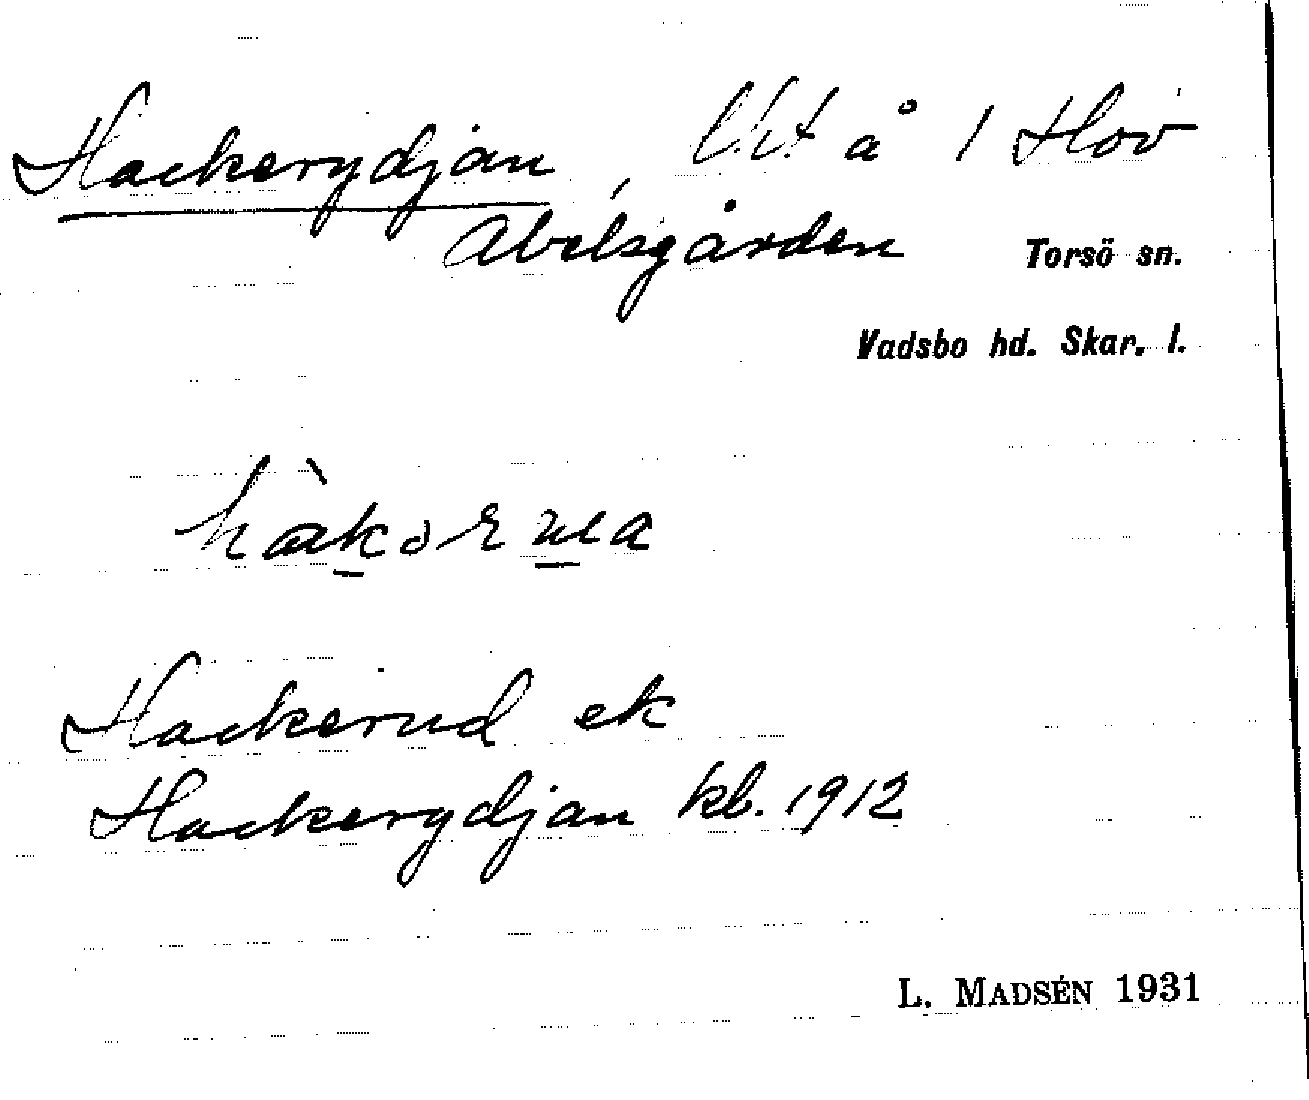 Hackerydjan, l.h.t å 1 Hov
Abelsgården Torsö sn.
Vadsbo hd. Skar. l.
Hackerud ek
Hackerydjan kb. 1912
L. MADSÉN 1931